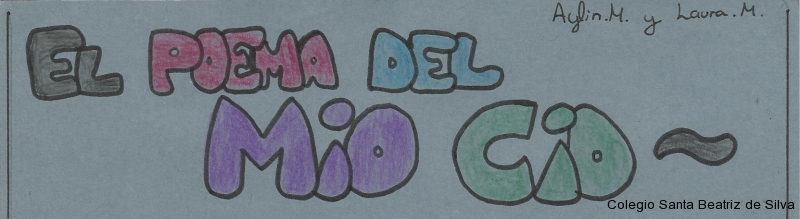 Aylin.M. y Laura.M.
EL POEMA DEL
MiO CiD ~
Colegio Santa Beatriz de Silva